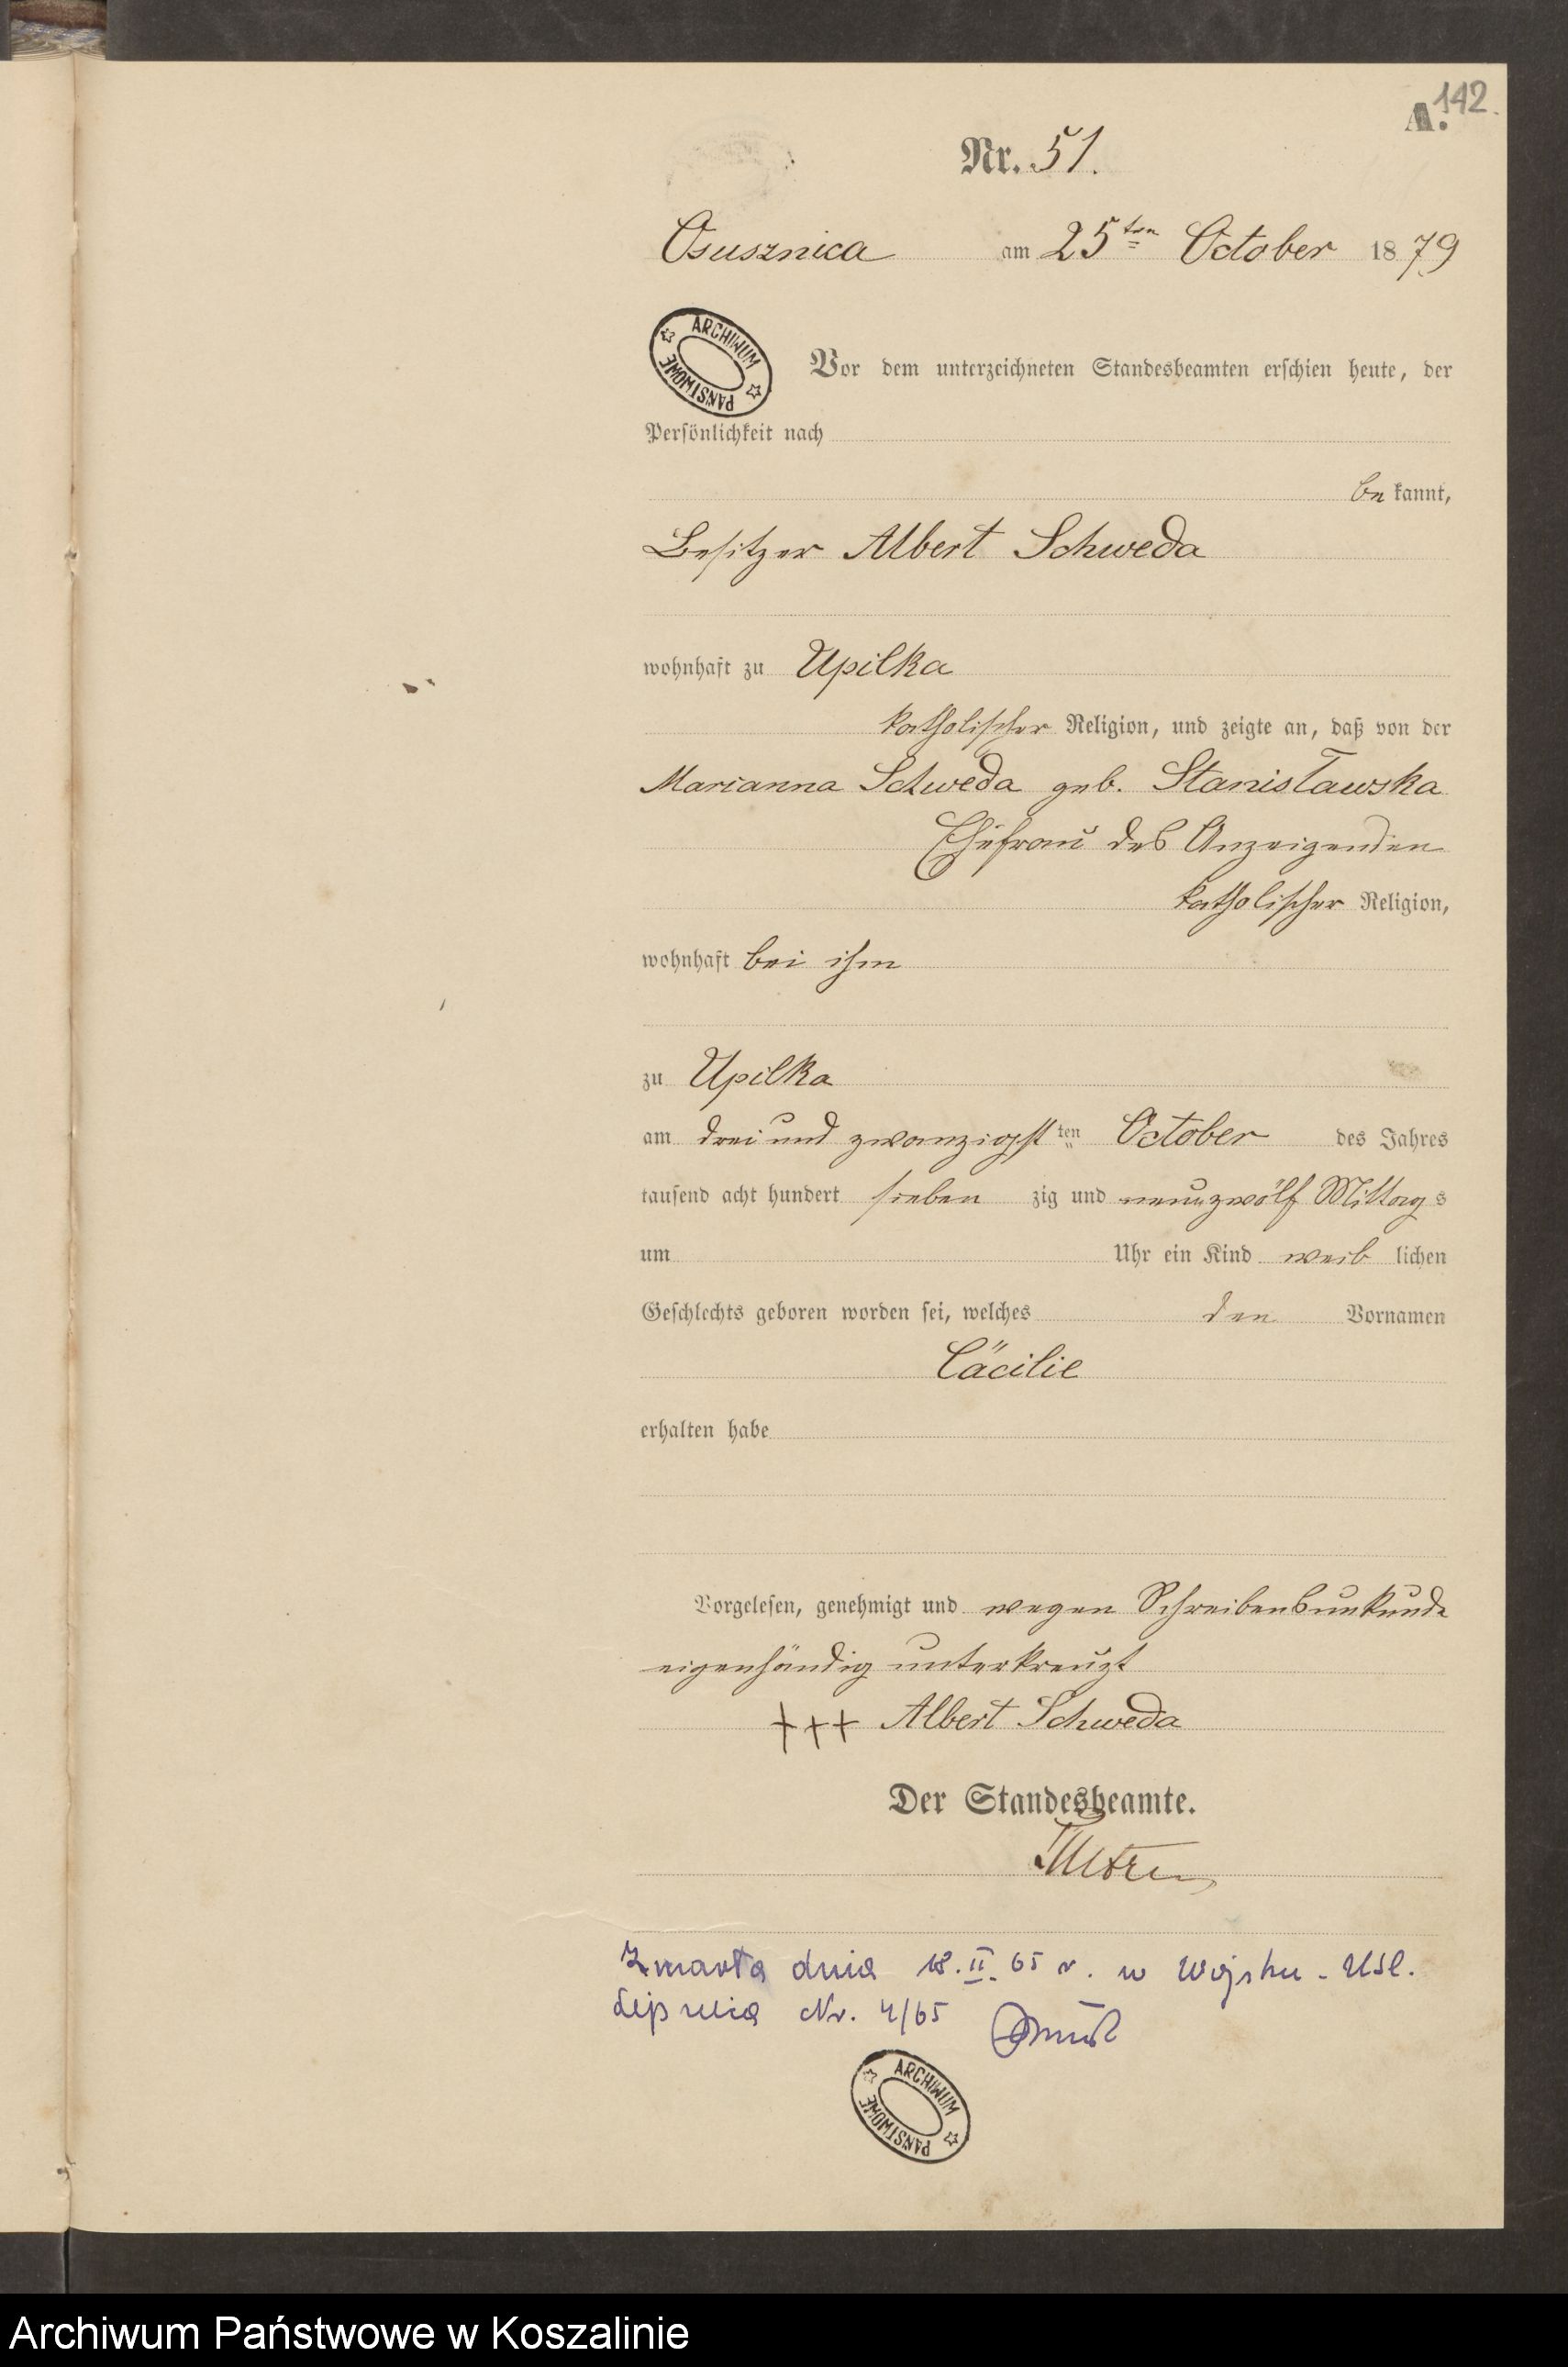 142.
A.
Nr. 51.
Osusznica am 25ten October 1879
ARCHIWUM PAŃSTWOWE
Vor dem unterzeichneten Standesbeamten erschien heute, der
Persönlichkeit nach
be kannt,
Besitzer Albert Schweda
wohnhaft zu Upilka
katholischer Religion, und zeigte an, daß von der
Marianna Schweda geb. Stanisławska
Ehefrau des Anzeigenden
katholischer Religion,
wohnhaft bei ihm
zu Upilka
am drei und zwanzigsten October des Jahres
tausend acht hundert sieben zig und neun zwölf Mittags
um Uhr ein Kind weib lichen
Geschlechts geboren worden sei, welches den Vornamen
Cäcilie
erhalten habe
Vorgelesen, genehmigt und wegen Schreibensunkunde
eigenhändig unterkreuzt
+++ Albert Schweda
Der Standesbeamte.
Zmarła dnia 18.II.65 r. w Wojsku - USC.
Lipnica Nr. 4/65
ARCHIWUM PAŃSTWOWE
Archiwum Państwowe w Koszalinie